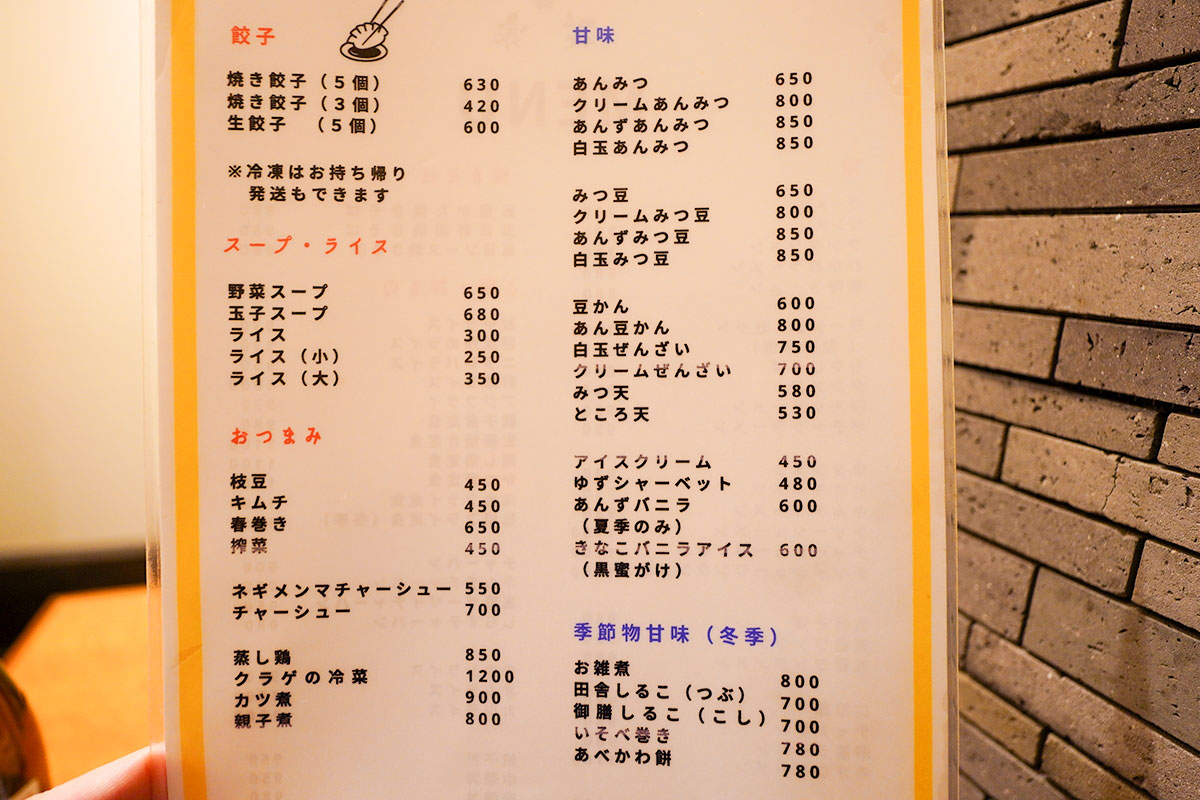 餃子
焼き餃子（5個） 630
焼き餃子（3個） 420
生餃子　（5個） 600
※冷凍はお持ち帰り
発送もできます
スープ・ライス
野菜スープ 650
玉子スープ 680
ライス 300
ライス（小） 250
ライス（大） 350
おつまみ
枝豆 450
キムチ 450
春巻き 650
搾菜 450
ネギメンマチャーシュー 550
チャーシュー 700
蒸し鶏 850
クラゲの冷菜 1200
カツ煮 900
親子煮 800
甘味
あんみつ 650
クリームあんみつ 800
あんずあんみつ 850
白玉あんみつ 850
みつ豆 650
クリームみつ豆 800
あんずみつ豆 850
白玉みつ豆 850
豆かん 600
あん豆かん 800
白玉ぜんざい 750
クリームぜんざい 700
みつ天 580
ところ天 530
アイスクリーム 450
ゆずシャーベット 480
あんずバニラ 600
（夏季のみ）
きなこバニラアイス 600
（黒蜜がけ）
季節物甘味（冬季）
お雑煮 800
田舎しるこ（つぶ） 700
御膳しるこ（こし） 700
いそべ巻き 780
あべかわ餅 780